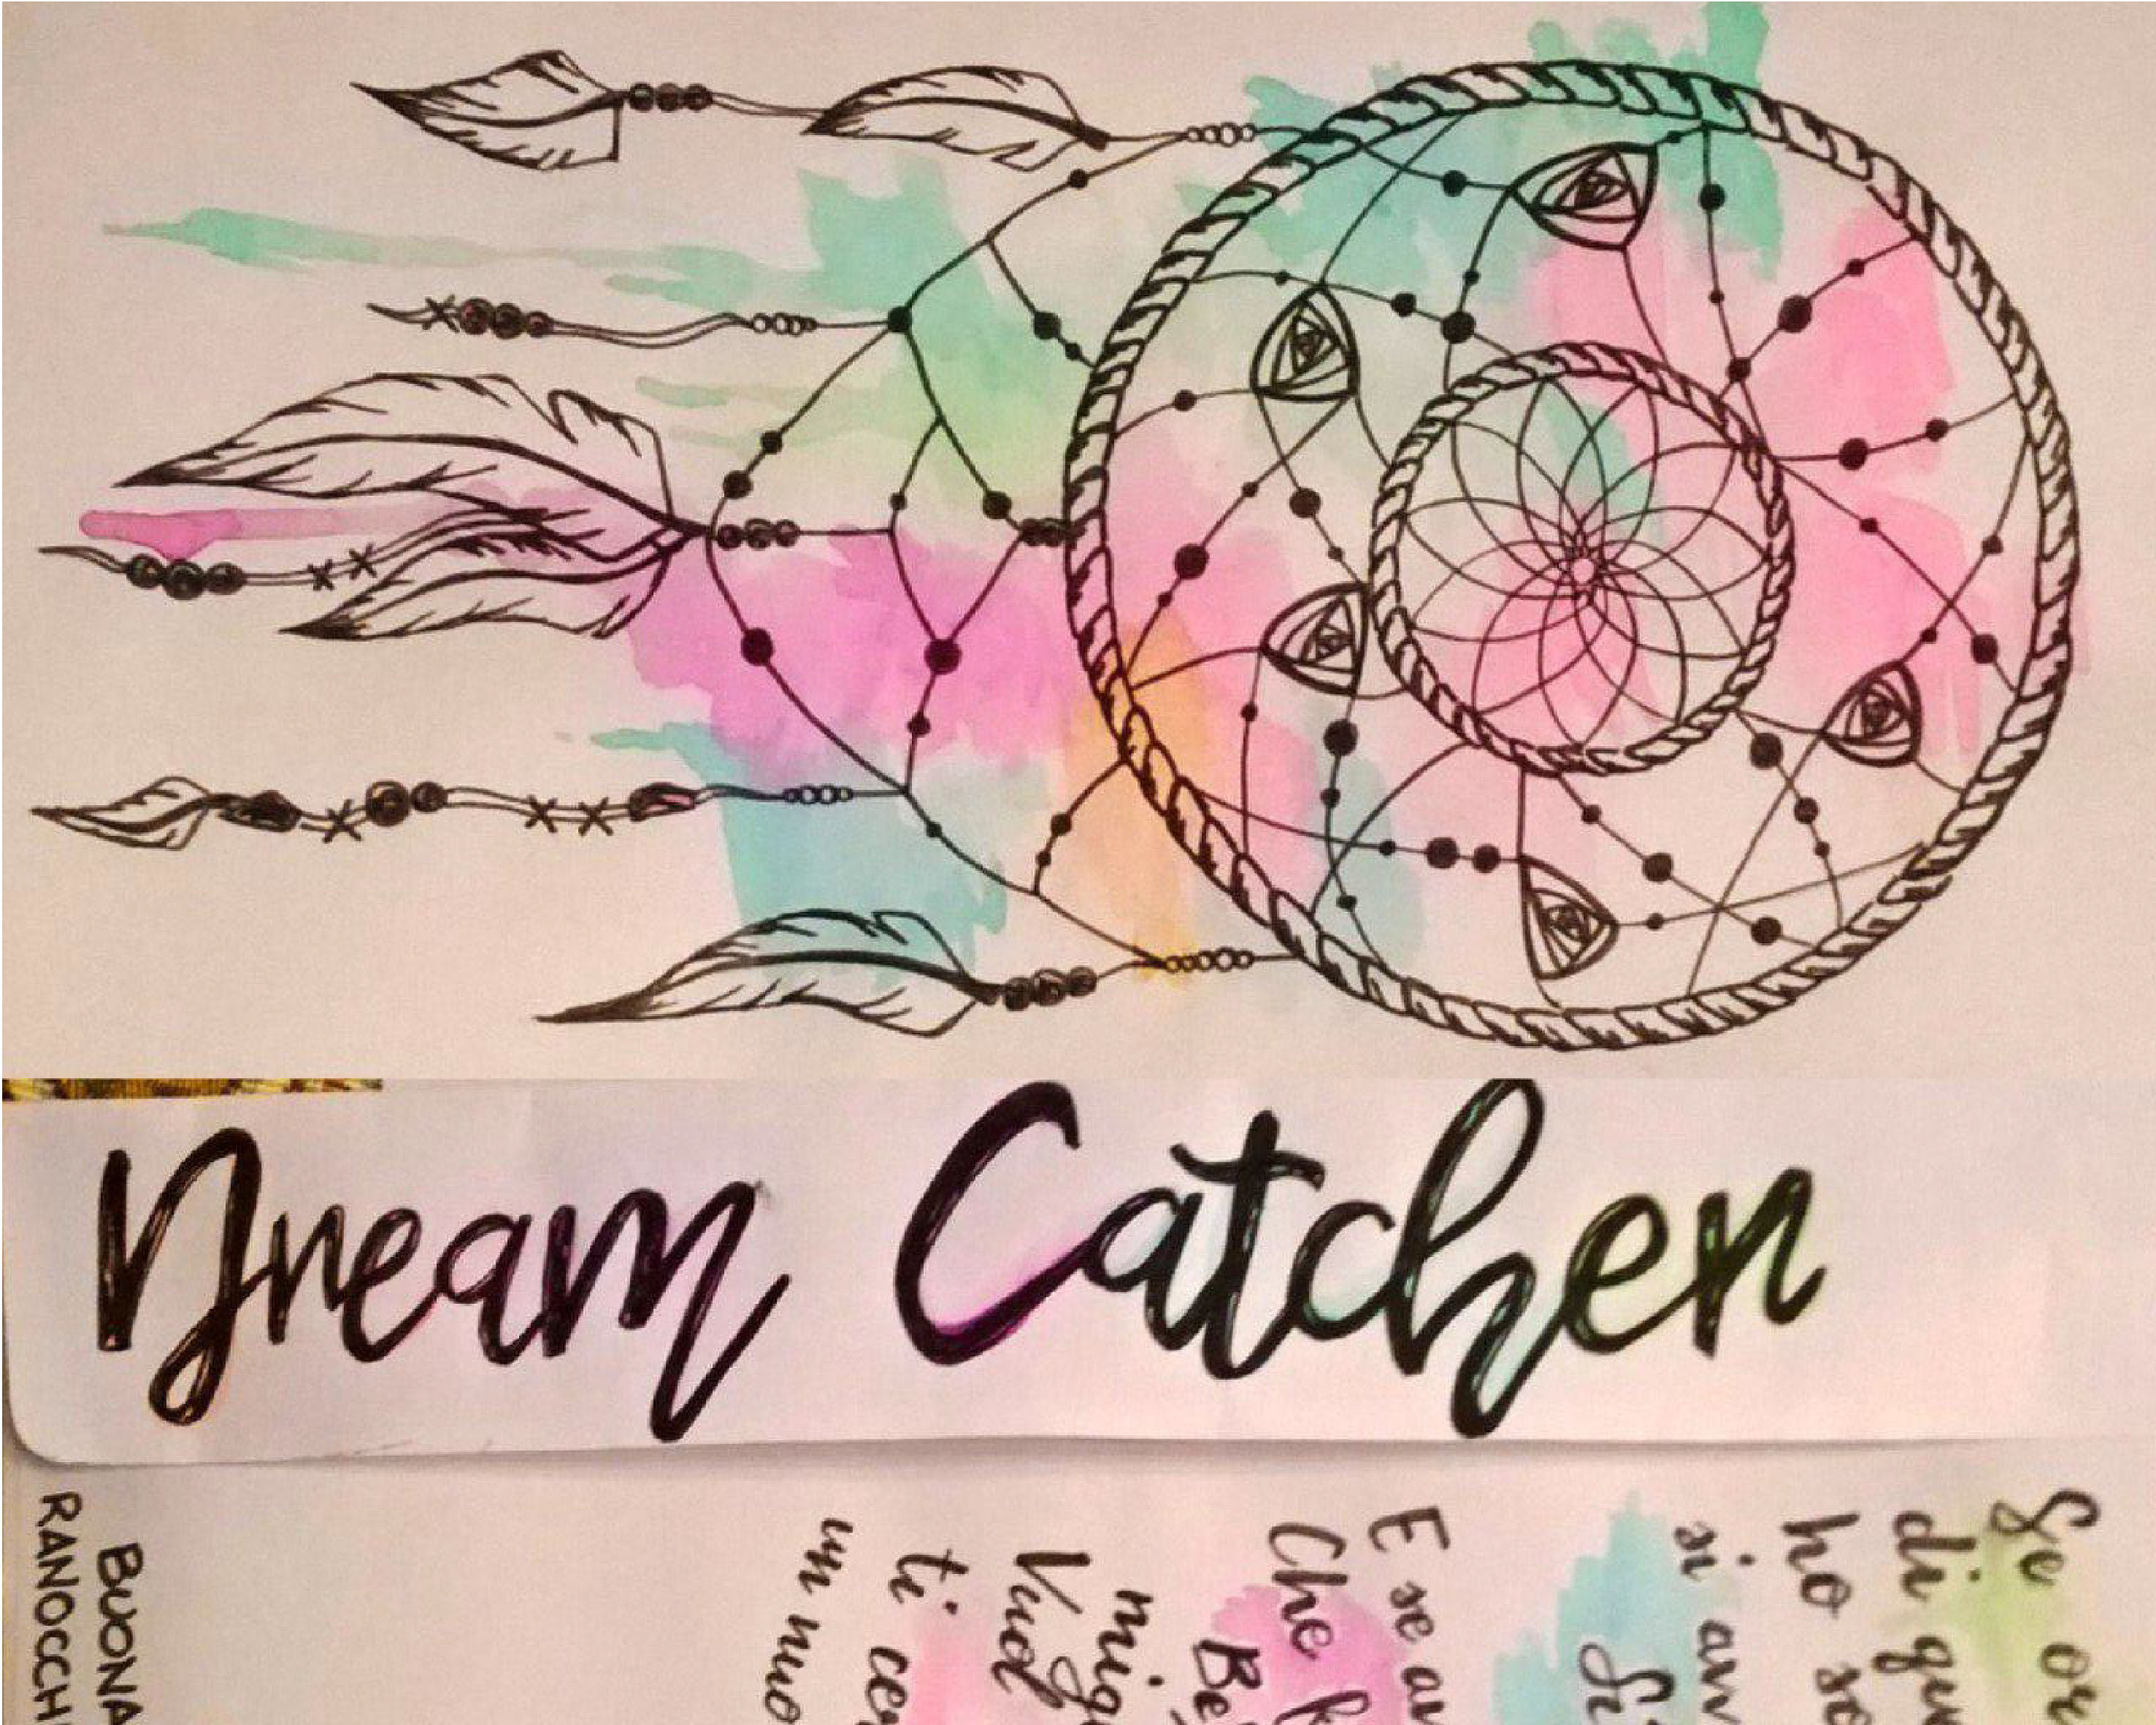 Dream Catcher
Se or
di que
ho so
si avv
Si
E se av
Che
Be
mig
Vuol
ti cer
un nuo
BUONA
RANOCCHI